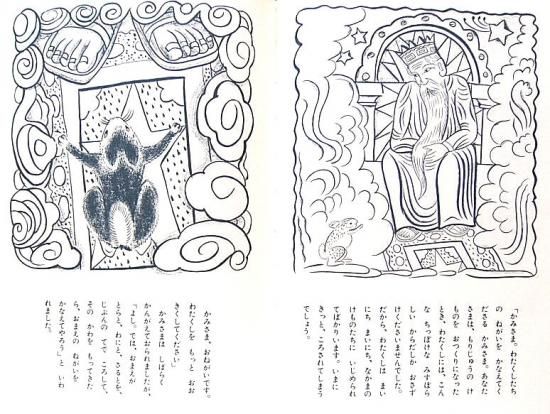 「かみさま。わたくしたち
の ねがいを かなえてく
ださる かみさま。あなた
さまは、もりじゅうの け
ものを おつくりになった
とき、わたくしには、こん
な ちっぽけな みすぼら
しい からだしか おさず
けくださいませんでした。
だから、わたくしは まい
にち まいにち、なかまの
けものたちに いじめられ
てばかりいます。いまに
きっと、ころされてしまう
でしょう。
かみさま、おねがいです。
わたくしを もっと おお
きくしてください」
かみさまは しばらく
かんがえておられましたが、
「よし。では、おまえが
とらと、わにと、さるとを、
じぶんの てで ころして、
その かわを もってきた
ら、おまえの ねがいを
かなえてやろう」と いわ
れました。